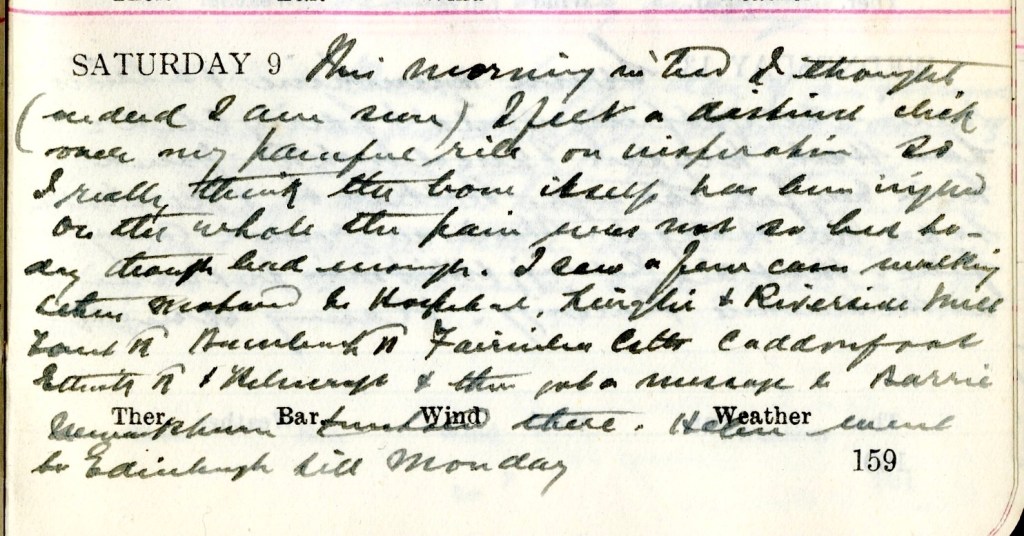 SATURDAY 9 This morning in bed I thought
(indeed I am sure) I felt a distinct click
over my painful rib on inspiration so
I really think the bone itself has been injured
On the whole the pain was not so bad to-
day though bad enough. I saw a few cases walking
to Hospital, & Riverside Mill
Fairnilee Cotts Caddonfoot
& & then got a message to Barrie
Ther Bar Wind Weather
there. Helen went
to Edinburgh till Monday
159